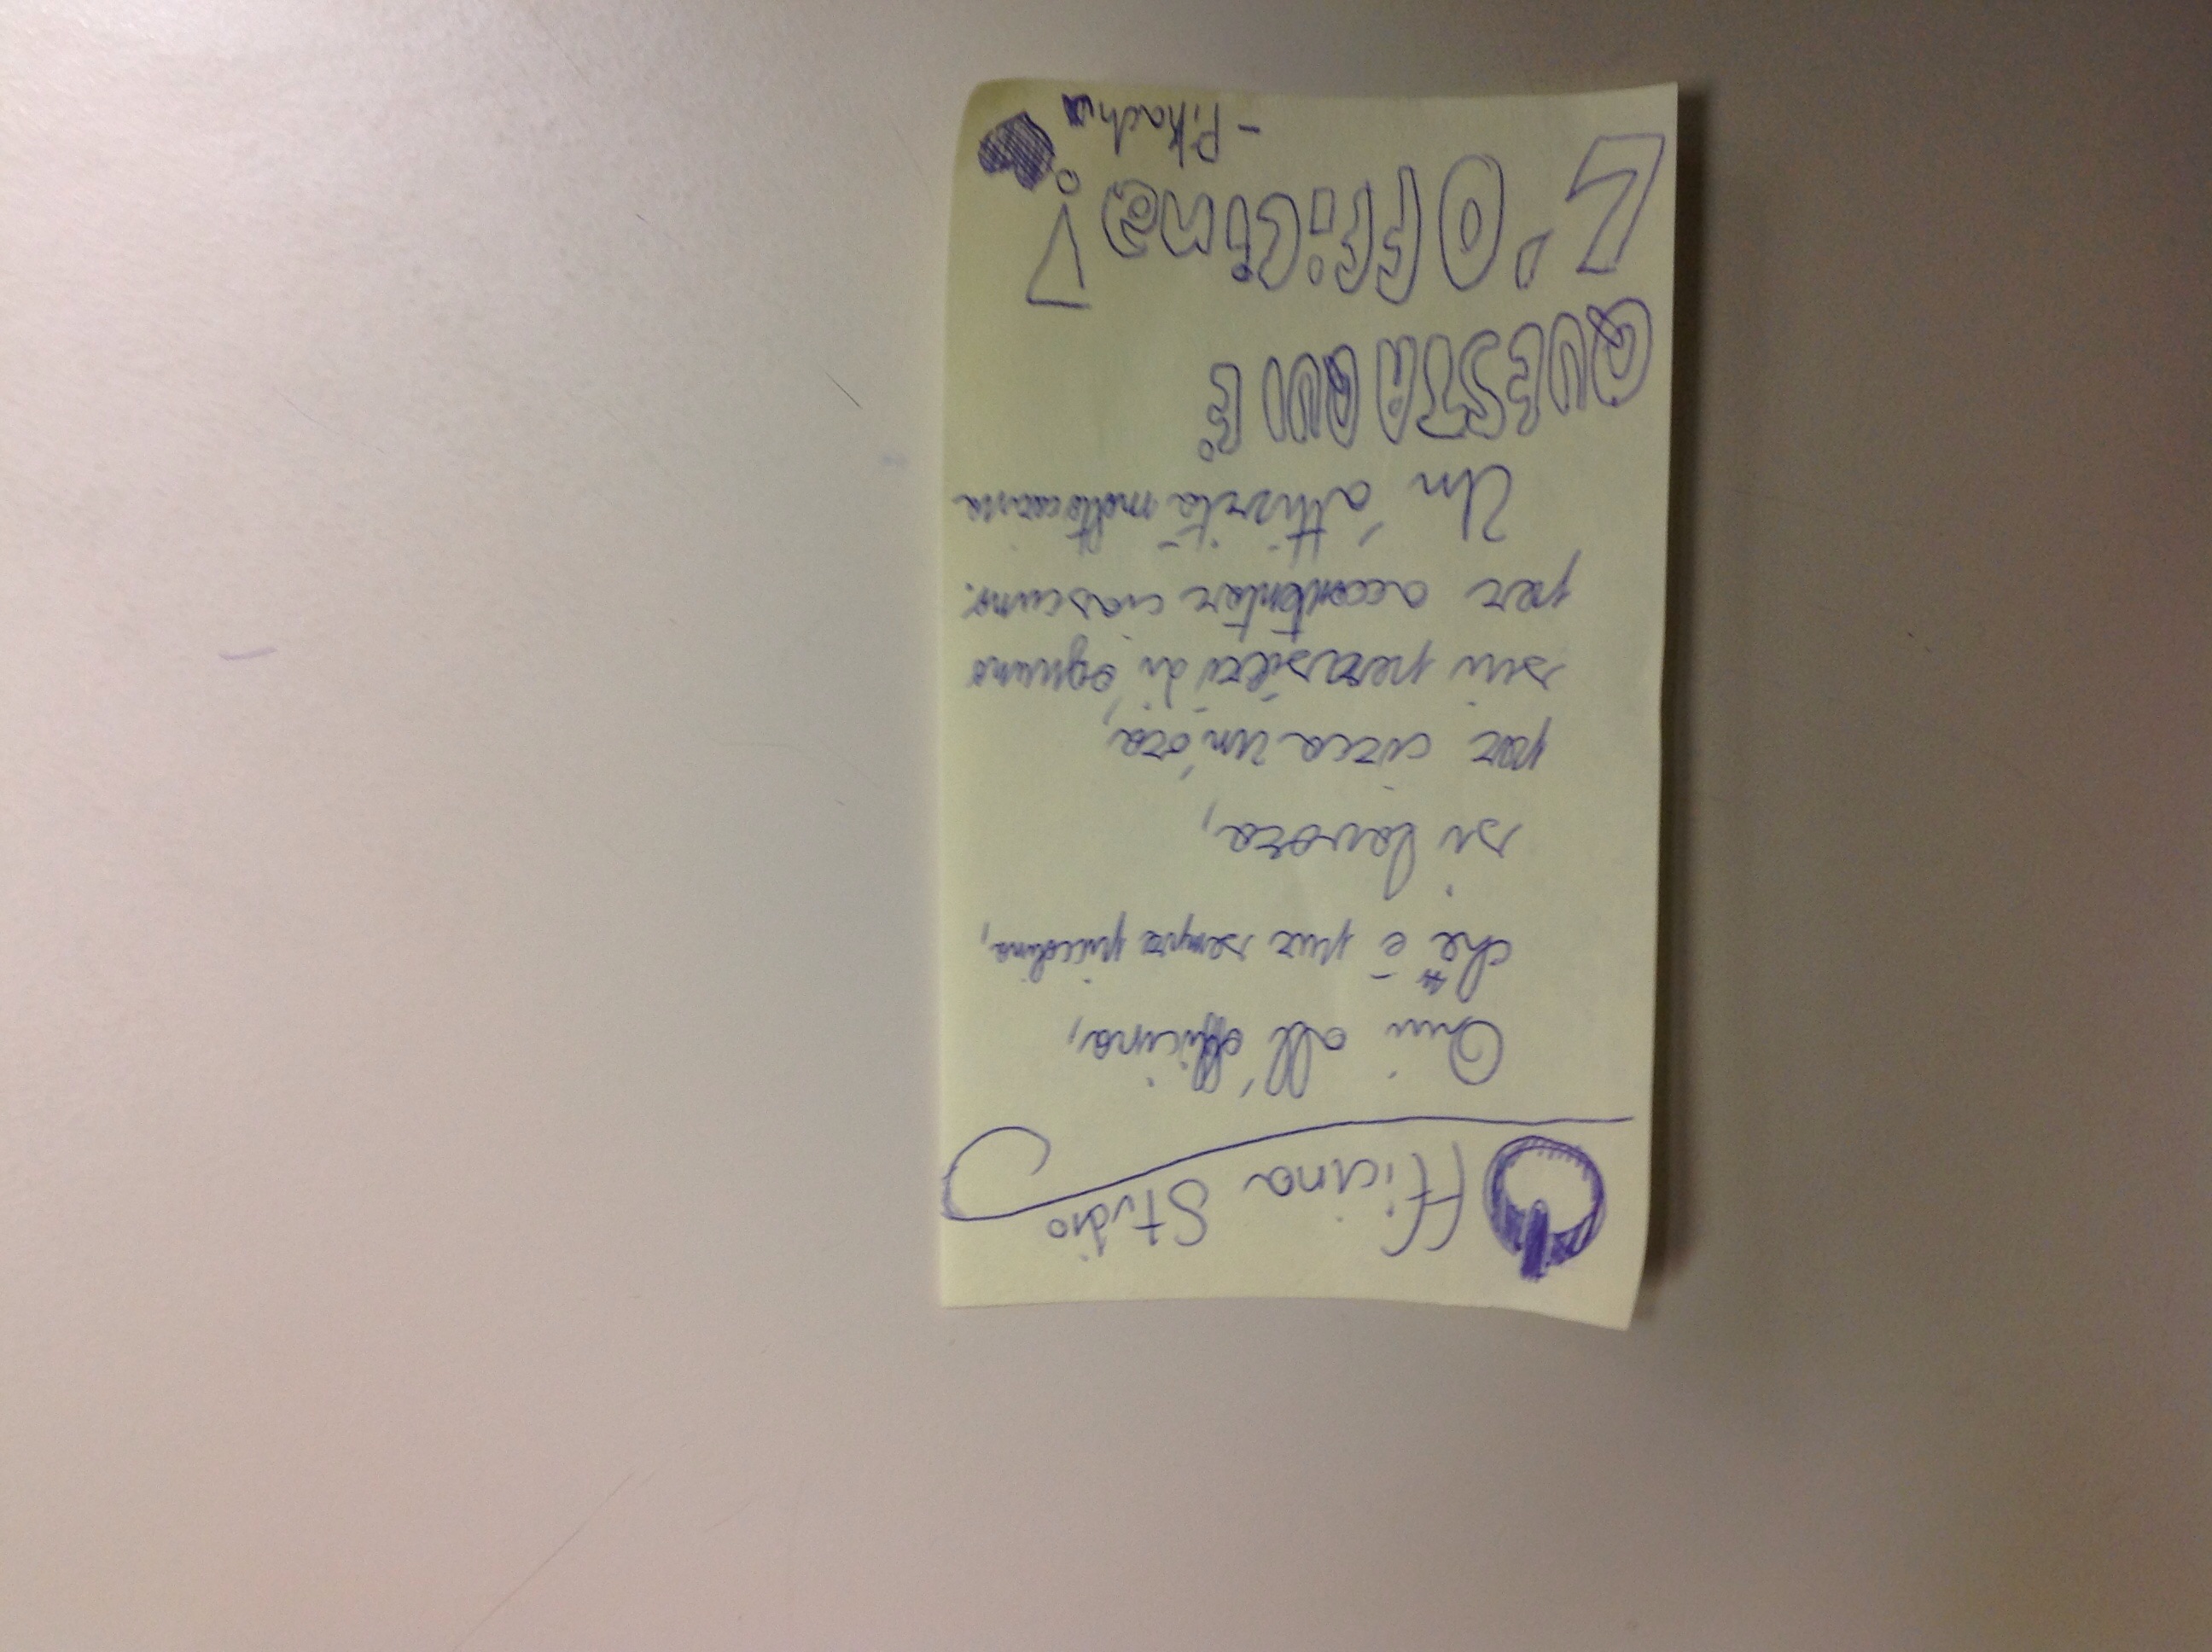 Officina Studio
Qui all'officina,
che è pur sempre piccolina,
si lavora,
per circa un'ora,
sui pensieri di ognuno
per accontentar ciascuno.
Un'attività molto carina
QUESTA QUI È
L'OFFiCina!
-Pikachu